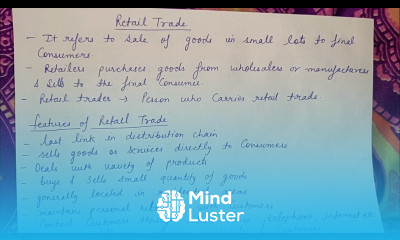 Retail Trade
- It refers to sale of goods in small lots to final
Consumers.
- Retailers purchases goods from wholesalers or manufacturers
& sells to the final Consumer.
- Retail trader → Person who Carries retail trade
features of Retail Trade
- last link in distribution chain
- sells goods or services directly to Consumers
- Deals with variety of products
- buys & sells small quantity of goods
- generally located in
- maintain personal with customers
Mind
Luster
- Contact Customers telephone, internet etc